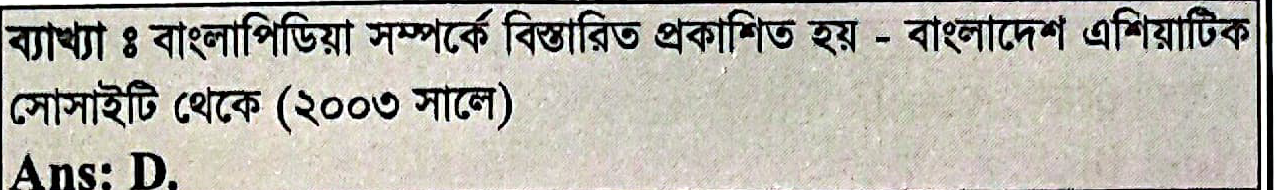 ব্যাখ্যা ঃ বাংলাপিডিয়া সম্পর্কে বিস্তারিত প্রকাশিত হয় - বাংলাদেশ এশিয়াটিক
সোসাইটি থেকে (২০০৩ সালে)
Ans: D.